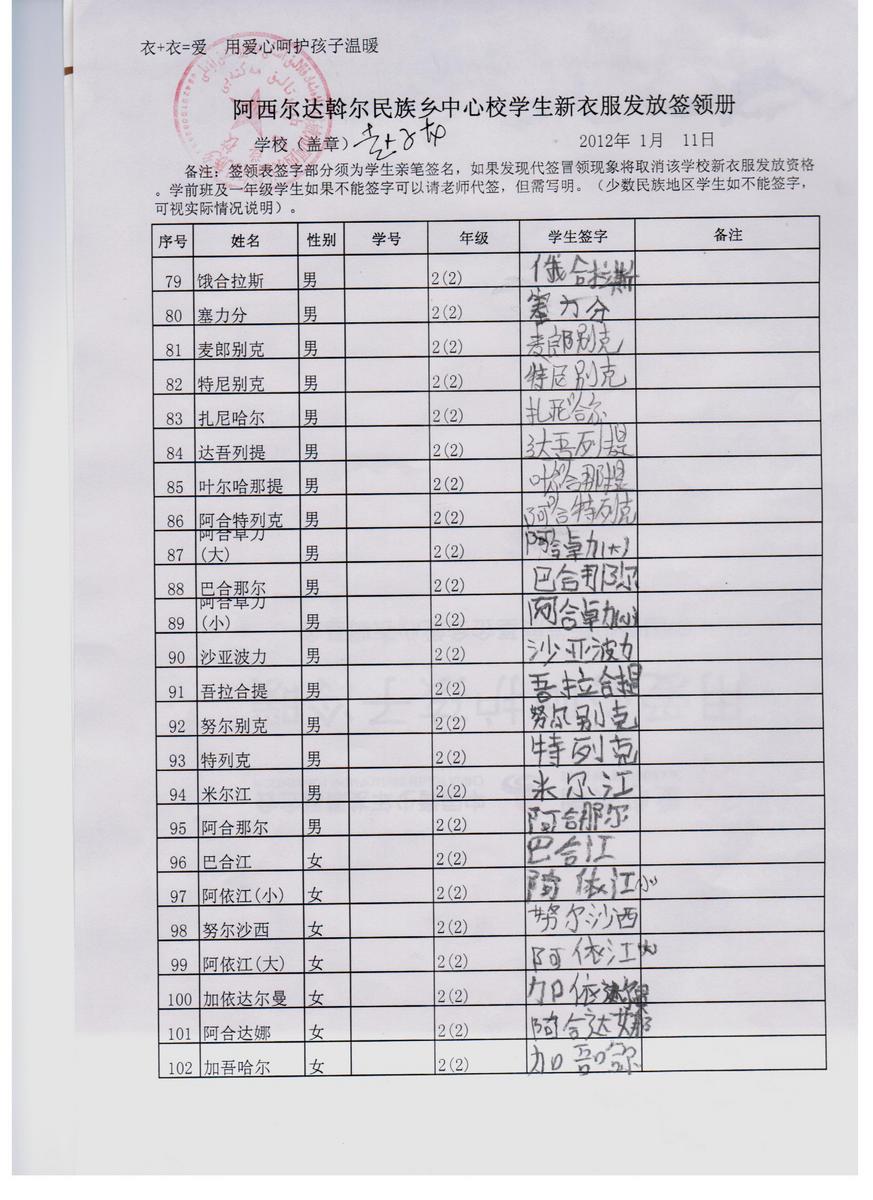 衣+衣=爱　用爱心呵护孩子温暖
阿西尔达斡尔民族乡中心校学生新衣服发放签领册
学校（盖章）
2012年 1月 11日
备注：签领表签字部分须为学生亲笔签名，如果发现代签冒领现象将取消该学校新衣服发放资格
。学前班及一年级学生如果不能签字可以请老师代签，但需写明。（少数民族地区学生如不能签字，
可视实际情况说明）。
序号 姓名 性别 学号 年级 学生签字 备注
79 饿合拉斯 男 2(2) 俄合拉斯
80 塞力分 男 2(2) 塞力分
81 麦郎别克 男 2(2) 麦郎别克
82 特尼别克 男 2(2) 特尼别克
83 扎尼哈尔 男 2(2) 扎尼哈尔
84 达吾列提 男 2(2) 达吾列提
85 叶尔哈那提 男 2(2) 叶尔哈那提
86 阿合特列克 男 2(2) 阿合特列克
87 阿合卓力(大) 男 2(2) 阿合卓力(大)
88 巴合那尔 男 2(2) 巴合那尔
89 阿合卓力(小) 男 2(2) 阿合卓力(小)
90 沙亚波力 男 2(2) 沙亚波力
91 吾拉合提 男 2(2) 吾拉合提
92 努尔别克 男 2(2) 努尔别克
93 特列克 男 2(2) 特列克
94 米尔江 男 2(2) 米尔江
95 阿合那尔 男 2(2) 阿合那尔
96 巴合江 女 2(2) 巴合江
97 阿依江(小) 女 2(2) 阿依江(小)
98 努尔沙西 女 2(2) 努尔沙西
99 阿依江(大) 女 2(2) 阿依江(大)
100 加依达尔曼 女 2(2) 加依达尔曼
101 阿合达娜 女 2(2) 阿合达娜
102 加吾哈尔 女 2(2) 加吾哈尔